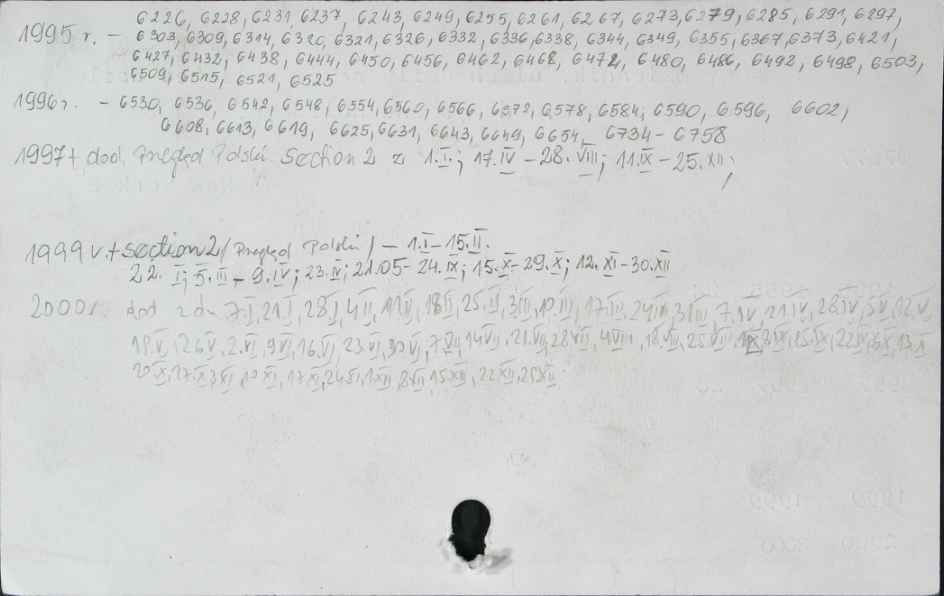 1995 r. – 6226, 6228, 6231, 6237, 6243, 6249, 6255, 6261, 6267, 6273, 6279, 6285, 6291, 6297,
6303, 6309, 6314, 6320, 6321, 6326, 6332, 6336, 6338, 6344, 6349, 6355, 6367, 6373, 6421,
6427, 6432, 6438, 6444, 6450, 6456, 6462, 6468, 6474, 6480, 6486, 6492, 6498, 6503,
6509, 6515, 6521, 6525
1996 r. – 6530, 6536, 6542, 6548, 6554, 6560, 6566, 6572, 6578, 6584, 6590, 6596, 6602,
6608, 6613, 6619, 6625, 6631, 6643, 6649, 6654, 6734 – 6758
1997 + dod. Przegląd Polski Section 2 z 1.I.; 17.IV – 28.VIII; 11.IX – 25.XII;
1999 r. + section 2 (Przegląd Polski) – 1.I – 15.II.
22.I; 5.III – 9.IV; 23.IV; 21.05 – 24.IX; 15.X – 29.X; 12.XI – 30.XII
2000 r. dod z dn 7 I, 21 I, 28 I, 4 II, 11 II, 18 II, 25 II, 3 III, 10 III, 17 III, 24 III, 31 III, 7 IV, 21 IV, 28 IV, 5 V, 12 V,
19 V, 26 V, 2 VI, 9 VI, 16 VI, 23 VI, 30 VI, 7 VII, 14 VII, 21 VII, 28 VII, 4 VIII, 18 VIII, 25 VIII, 15 IX, 22 IX, 6 X, 13 X
20 X, 27 X, 3 XI, 10 XI, 17 XI, 24 XI, 1 XII, 8 XII, 15 XII, 22 XII, 29 XII